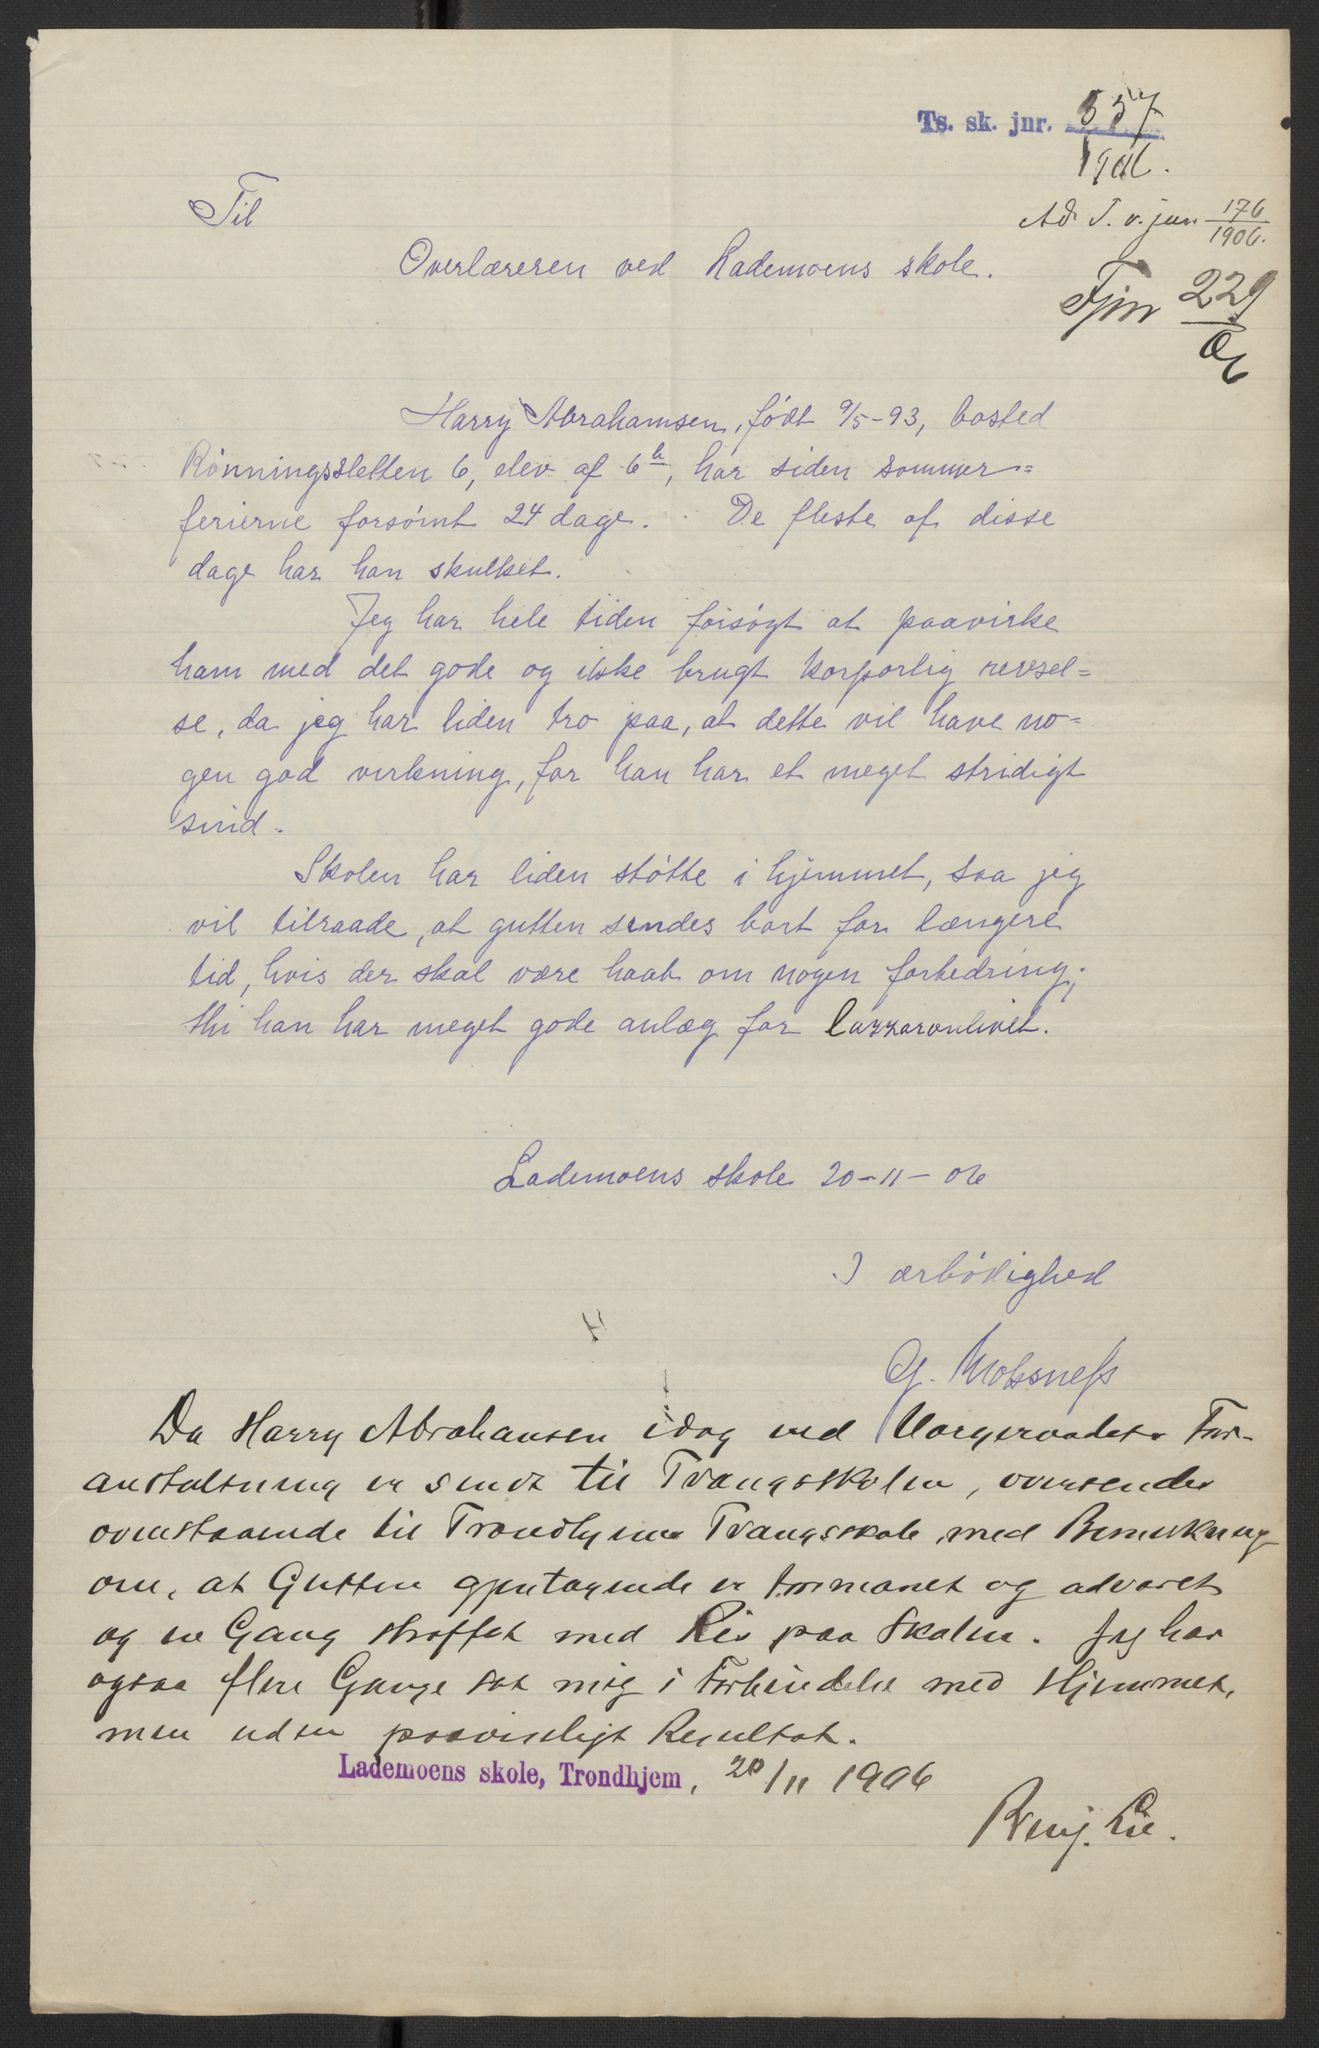 Ts. sk. jnr. 357
1906.
Ad. T. v. jnr. 176/1906.
Til
Overlæreren ved Lademoens skole.
Fjnr 229/06
Harry Abrahamsen, født 9/5-93, bosted
Rönningsletten 6, elev af 6te, har siden sommer=
ferierne forsömt 24 dage. De fleste af disse
dage har han skulket.
Jeg har hele tiden forsøgt at paavirke
ham med det gode og ikke brugt korporlig revsel=
se, da jeg har liden tro paa, at dette vil have no=
gen god virkning, for han har et meget stridigt
sind.
Skolen har liden støtte i hjemmet, saa jeg
vil tilraade, at gutten sendes bort for længere
tid, hvis der skal være haab om nogen forbedring;
thi han har meget gode anlæg for lazzaronlivet.
Lademoens skole 20-11-06
I ærbödighed
G. Mossness
Da Harry Abrahansen idag ved Værgeraadets For-
anstaltning er sendt til Tvangsskolen, oversendes
ovenstaaende til Trondhjems Tvangsskole med Bemerkning
om, at Gutten gjentagende er formanet og advaret
og en Gang straffet med Ris paa Skolen. Jeg har
ogsaa flere Gange sat mig i Forbindelse med Hjemmet,
men uden paaviseligt Resultat.
Lademoens skole, Trondhjem, 20/11 1906
Benj. Lie.